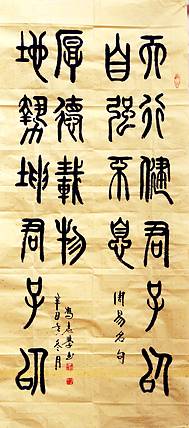 天行健君子以
自强不息
周易名句
地勢坤君子以
厚德載物